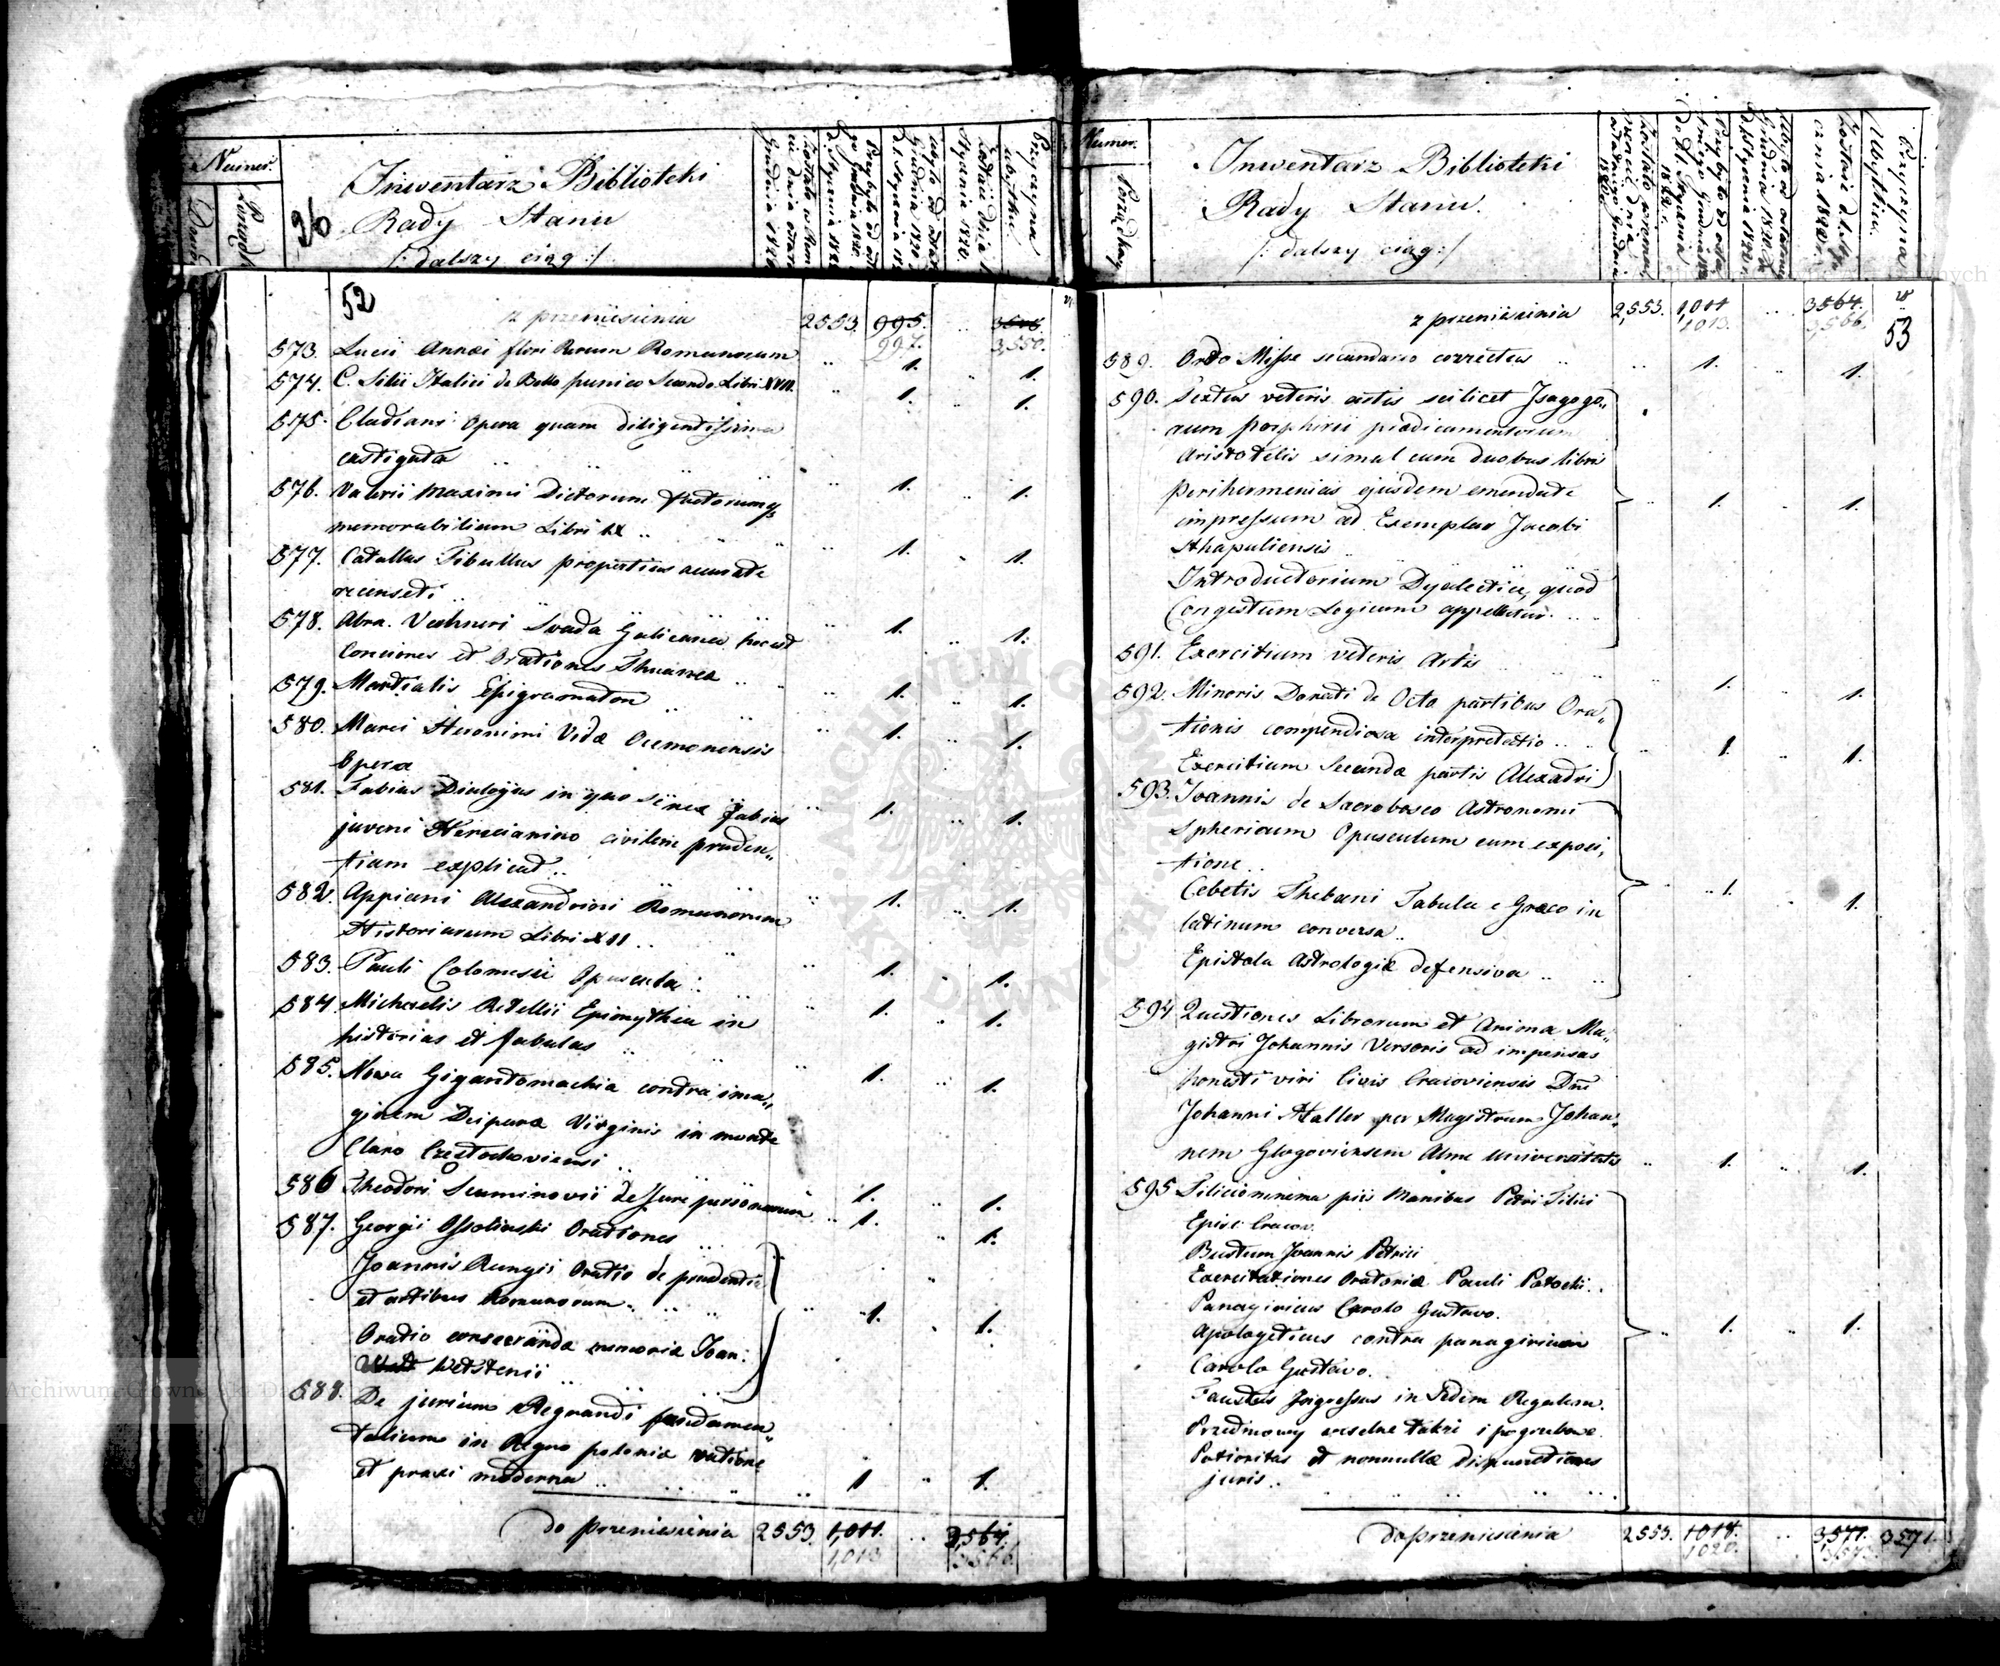 Numer.
Porządk.
26
Inwentarz Biblioteki
Rady Stanu
/: dalszy ciąg :/
Przyczyna
ubytku
52
z przeniesienia 2553. 995. .. 3548.
997. 3,550.
573. Lucii Annæi flori Rerum Romanorum .. 1. 1.
574. C. Silii Italici de Bello punico Secundo Libri XVII. .. 1. .. 1.
575. Cladiani Opera quam diligentissima
castigata .. .. 1. .. 1.
576. Valerii Maximi Dictorum factorumq
memorabilium Libri IX .. .. 1. . 1.
577. Catullus Tibullus propertius accurate
recenseti .. .. 1. .. 1.
578. Abra. Vechneri Svada Galicana hoc est
Conciones et Orationes Thuanea .. .. 1. .. 1.
579. Martialis Epigramaton .. .. 1. .. 1.
580. Marci Hieronimi Vidæ Cremonensis
Opera .. 1. .. 1.
581. Fabius Dialogus in quo Senex Fabius
juveni civilem pruden„
tiam explicat .. .. 1. .. 1.
582. Appiani Alexandrini Romanorum
Historiarum Libri XII .. .. 1. . 1.
583. Pauli Colomesii Opuscula .. .. 1. .. 1.
584. Michaelis Retellii Epimythia in
historias et fabulas .. .. 1. .. 1.
585. Nowa Gigantomachia contra ima„
ginem Deiparæ Virginis in monte
Claro Częstochoviensi .. 1. .. 1.
586 Theodori Scuminovii de Jure personarum .. 1. .. 1.
587. Georgii Ossolinski Orationes ..
Joannis Rungii Oratio de prudentia
et artibus Romanorum .. .. 1. . 1.
Oratio conservanda memoriæ Joan:
Wetstenii ..
588. De jurium Regnandi fundamen„
talium in Regno poloniæ ratione
et praxi moderna .. .. 1 .. 1.
do przeniesienia 2553. 1,011. .. 3,564.
1,013 3566.
Numer.
Porządkow.
Inwentarz Biblioteki
Rady Stanu.
/: dalszy ciąg :/
Przyczyna
Ubytku.
z przeniesienia 2,553. 1,011 .. 3564.
1,013. 3,566.
53
589. Ordo Missæ secundario correctus .. .. 1. .. 1.
590. Textus veteris artis scilicet Isagogo„
rum porphirii prædicamentorum
Aristotelis simul cum duobus libris
perihermenias ejusdem emendate
impressum ad Exemplar Jacobi
Sthapuliensis ..
Introductorium Dyalectice, quod
Congestum Logicum appellatur. .. .. 1. . 1.
591. Exercitium veteris Artis .. .. 1. .. 1.
592. Minoris Donati de Octo partibus Ora„
tionis compendiosa interpretatio ..
Exercitium Secundæ partis Alexadri .. 1. .. 1.
593. Joannis de Sacrobosco Astronomi
Sphericum Opusculum cum exposi„
tione ..
Cebetis Thebani Tabula e Græco in
latinum conversa ..
Epistola Astrologiæ defensiva .. .. 1. . 1.
594 Questiones Librorum et Anima Ma„
gistri Johannis Versoris ad impensas
honesti viri Civis Cracoviensis Dni
Johanni Haller per Magistrum Johan„
nem Glogoviensem Alme Universitatis .. 1. .. 1.
595 piis Manibus Petri Tilici
Episc: Cracov.
Bustum Joannis Petricii
Exercitationes Oratoriæ Pauli Potocki ..
Panagiricus Carolo Gustavo.
Apologeticus contra panagiricum .. 1. .. 1.
Carolo Gustavo.
Faustus Ingressus in Sedem Regalem.
Przedmowy weselne takri i pogrzebowe.
Potioritas et nonnullæ disputationes
juris ..
do przeniesienia 2553. 1018. .. 3,571. 3571.
1020. 3,573.